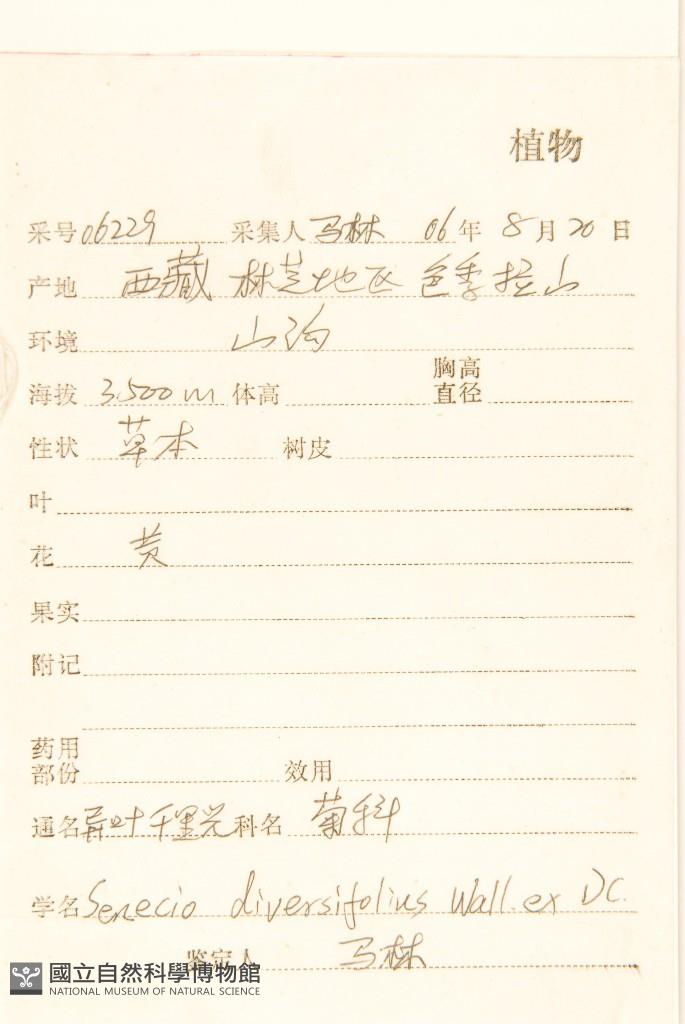 植物
采号 06229 采集人 马林 06 年 8 月 20 日
产地 西藏 林芝地区 色季拉山
环境 山沟
海拔 3500m 体高 胸高直径
性状 草本 树皮
叶
花 黄
果实
附记
药用部份 效用
通名 异叶千里光 科名 菊科
学名 Senecio diversifolius Wall. ex DC.
鉴定人 马林
國立自然科學博物館
NATIONAL MUSEUM OF NATURAL SCIENCE